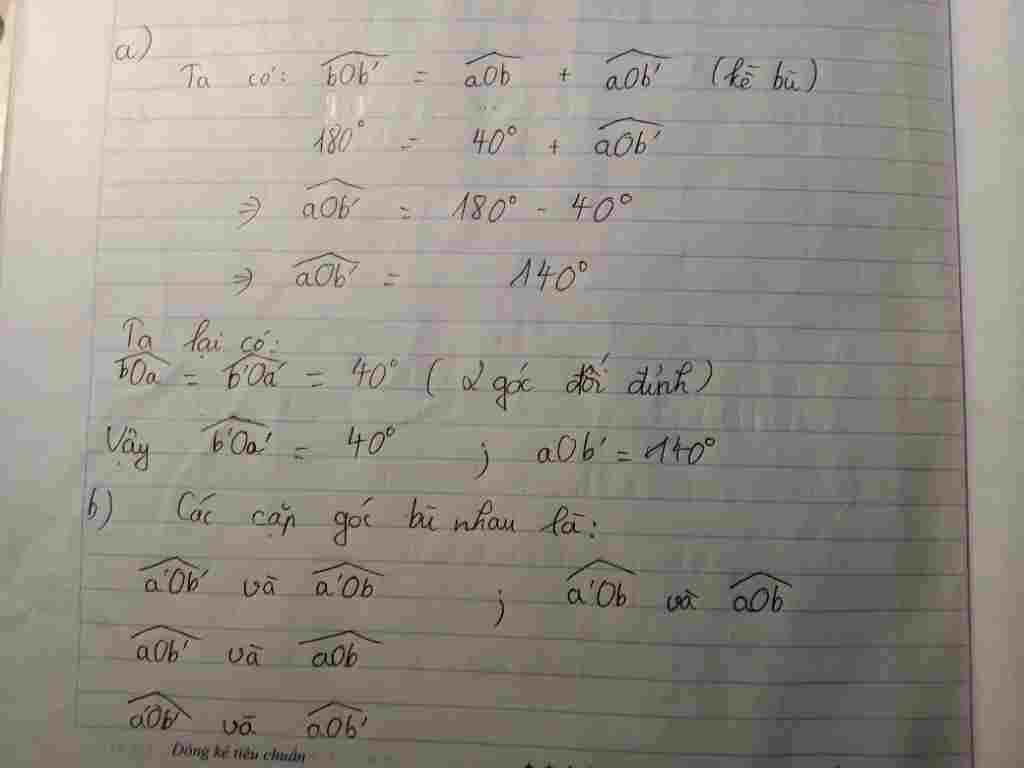 a)
Ta có: bOb' = aOb + aOb' (kề bù)
180° = 40° + aOb'
⇒ aOb' = 180° - 40°
⇒ aOb' = 140°
Ta lại có:
bOa = b'Oa' = 40° (2 góc đối đỉnh)
Vậy b'Oa' = 40° ; aOb' = 140°
b) Các cặp góc bù nhau là:
a'Ob' và a'Ob ; a'Ob và aOb
aOb' và aOb
a'Ob' và aOb'
Dòng kẻ tiêu chuẩn